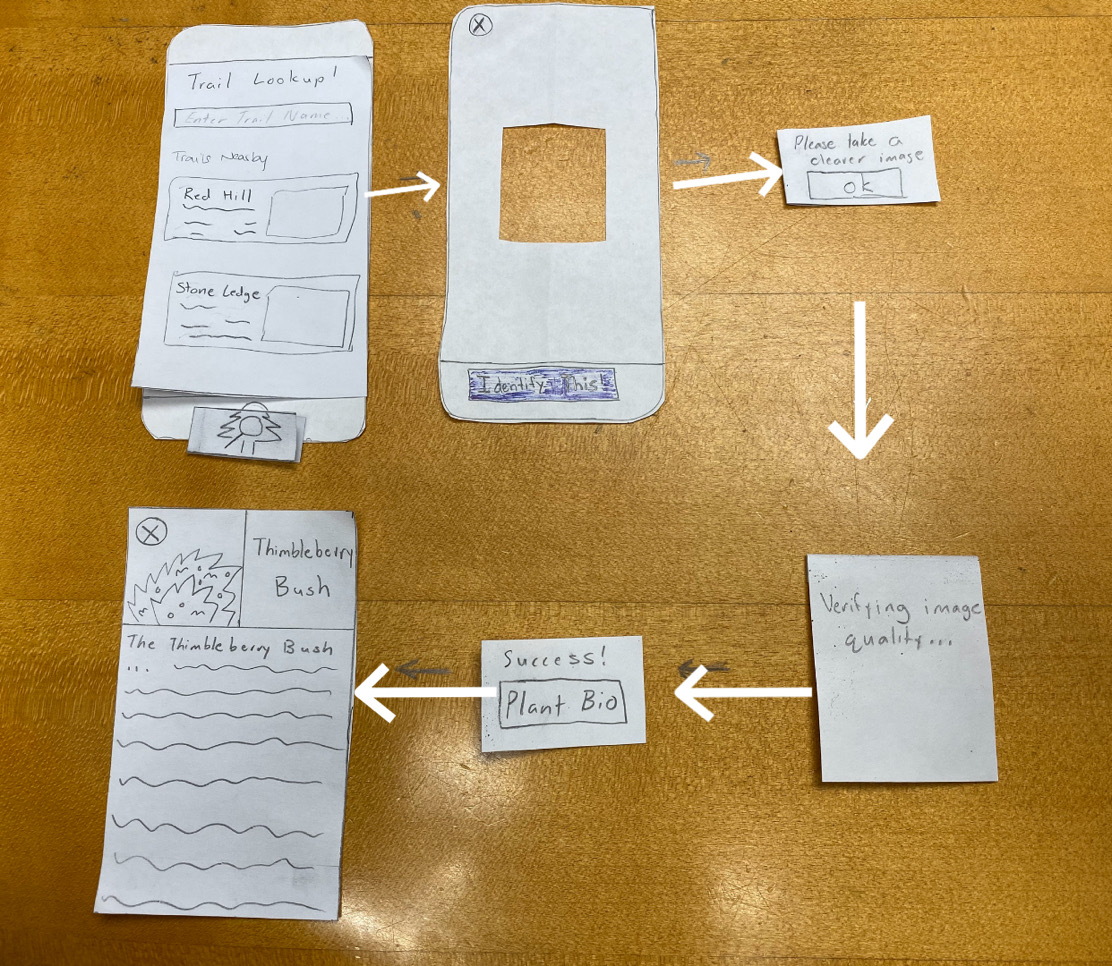 Trail Lookup!
Enter Trail Name...
Trails Nearby
Red Hill
Stone Ledge
X
Identify This!
Please take a
clearer image
OK
Verifying image
quality...
Success!
Plant Bio
X
Thimbleberry
Bush
The Thimbleberry Bush
...